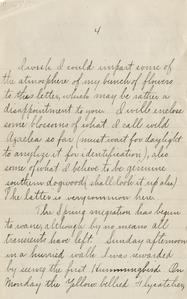 4
I wish I could impart some of
the atmosphere of my bunch of flowers
to this letter, which may be rather a
disappointment to you. I will enclose
some blossoms of what I call wild
Azalea so far (must wait for daylight
to analyze it for identification), also
some of what I believe to be genuine
southern dogwood (shall look it up also)
The latter is very common here.
The Spring migration has begun
to wane, although by no means all
transients have left. Sunday afternoon
in a hurried walk I was rewarded
by seeing the first Hummingbird. On
Monday the Yellow-bellied Flycatcher,